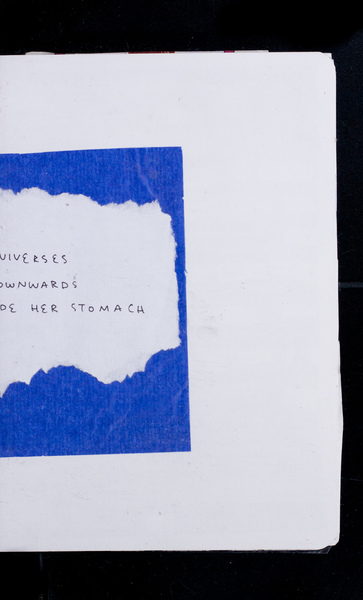 NIVERSES
OWNWARDS
DE HER STOMACH